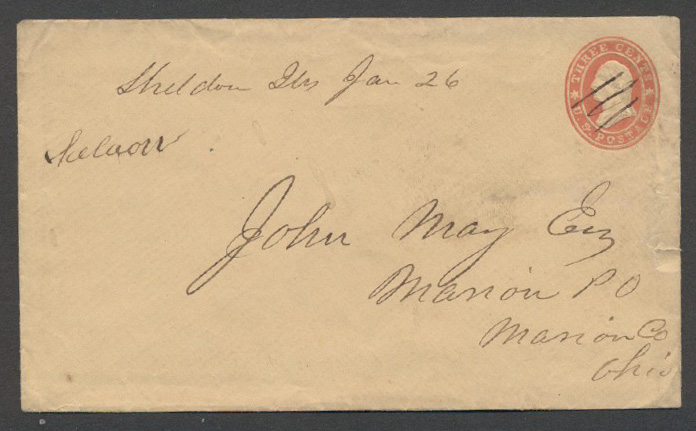 Sheldon Ills Jan 26
THREE CENTS
U.S. POSTAGE
John May Esq
Marion P O
Marion Co
Ohio